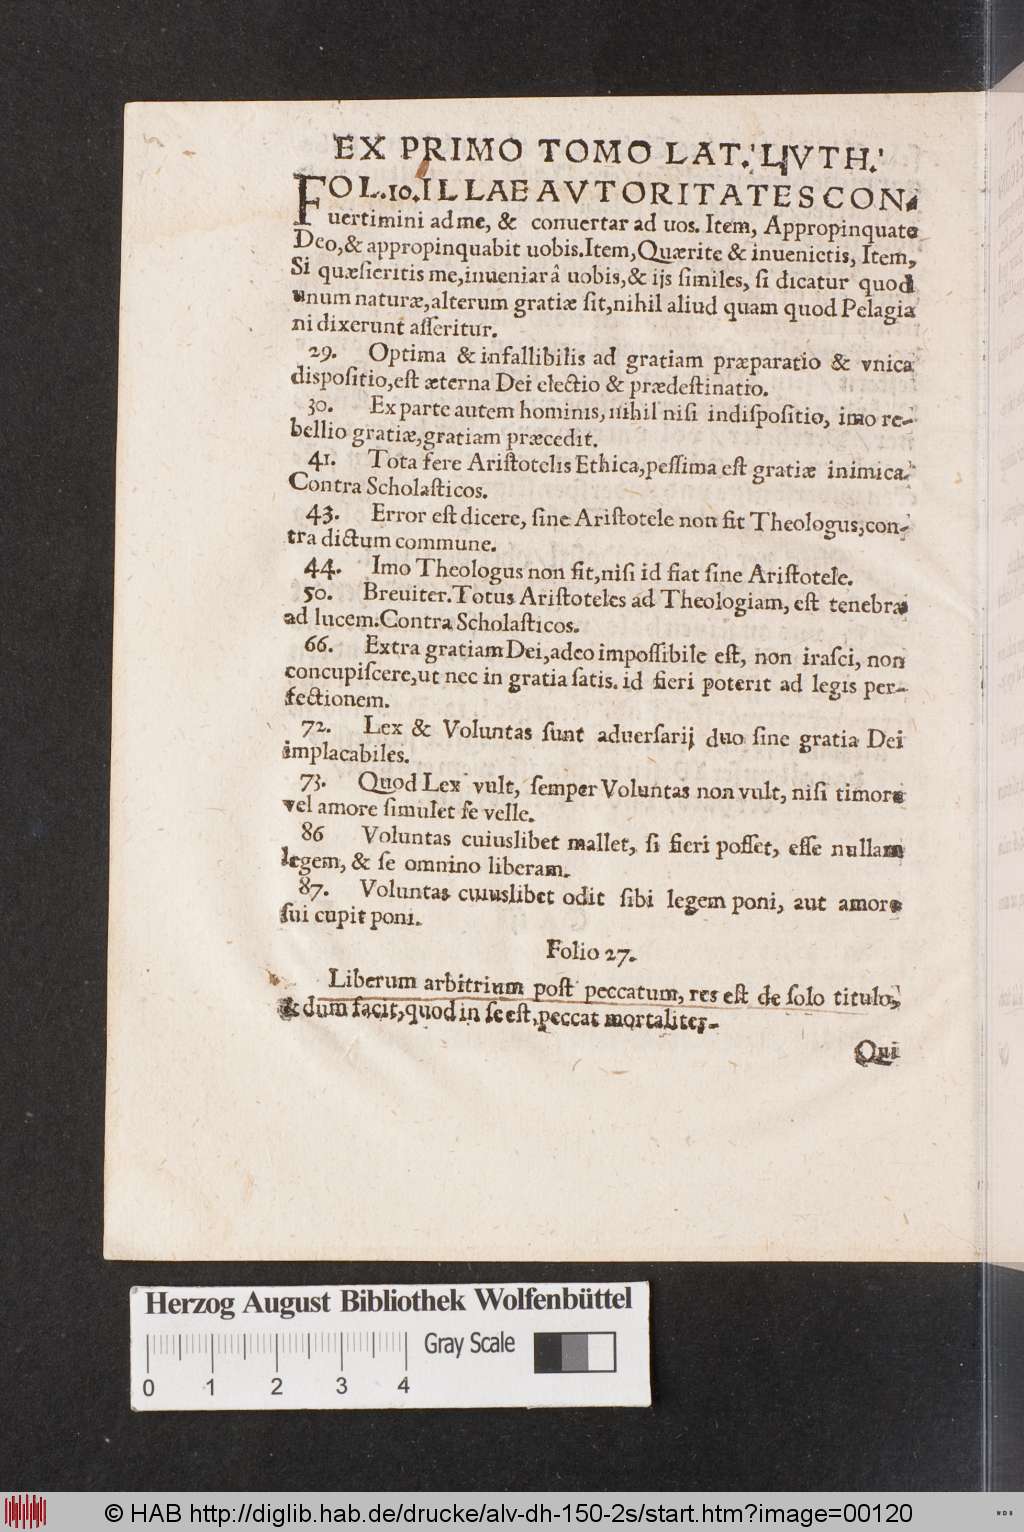 EX PRIMO TOMO LAT. LVTH.
FOL.10.ILLAE AVTORITATES CON-
uertimini ad me, & conuertar ad uos. Item, Appropinquate
Deo,& appropinquabit uobis.Item,Quærite & inuenietis, Item,
Si quæſieritis me,inueniar â uobis,& ijs ſimiles, ſi dicatur quod
unum naturæ,alterum gratiæ ſit,nihil aliud quam quod Pelagia
ni dixerunt aſſeritur.
29. Optima & infallibilis ad gratiam præparatio & vnica
diſpoſitio,eſt æterna Dei electio & prædeſtinatio.
30. Ex parte autem hominis, nihil niſi indiſpoſitio, imo re-
bellio gratiæ,gratiam præcedit.
41. Tota fere Ariſtotelis Ethica,peſſima eſt gratiæ inimica.
Contra Scholaſticos.
43. Error eſt dicere, ſine Ariſtotele non fit Theologus,con-
tra dictum commune.
44. Imo Theologus non fit,niſi id fiat ſine Ariſtotele.
50. Breuiter.Totus Ariſtoteles ad Theologiam, eſt tenebra
ad lucem.Contra Scholaſticos.
66. Extra gratiam Dei,adeo impoſſibile eſt, non iraſci, non
concupiſcere,ut nec in gratia ſatis.id fieri poterit ad legis per-
fectionem.
72. Lex & Voluntas ſunt aduerſarij duo ſine gratia Dei
implacabiles.
73. Quod Lex vult, ſemper Voluntas non vult, niſi timore
vel amore ſimulet ſe velle.
86 Voluntas cuiuslibet mallet, ſi fieri poſſet, eſſe nullam
legem, & ſe omnino liberam.
87. Voluntas cuiuslibet odit ſibi legem poni, aut amore
ſui cupit poni.
Folio 27.
Liberum arbitrium poſt peccatum, res eſt de ſolo titulo,
& dum facit,quod in ſe eſt,peccat mortaliter.
Qui
Herzog August Bibliothek Wolfenbüttel
Gray Scale
0 1 2 3 4
© HAB http://diglib.hab.de/drucke/alv-dh-150-2s/start.htm?image=00120